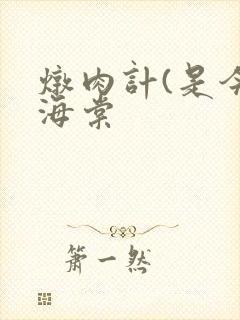 燉肉計(是今
海棠
萧一然